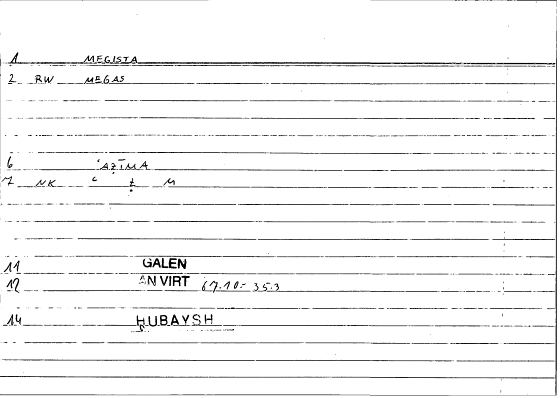 1 MEGISTA
2 RW MEGAS
6 ʿAẒĪMA
7 NK ʿ ẓ M
11 GALEN
12 AN VIRT 67.10-35.3
14 ḤUBAYSH